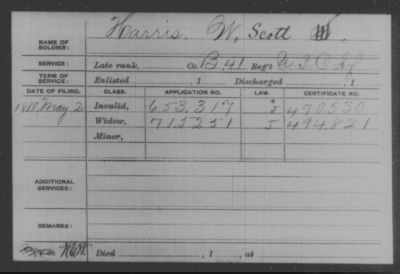 NAME OF SOLDIER: Harris, W. Scott
SERVICE: Late rank, Co. B, 41 Reg't U.S.C. Inf
TERM OF SERVICE: Enlisted , 1 Discharged , 1
DATE OF FILING. CLASS. APPLICATION NO. LAW CERTIFICATE NO.
May 2 Invalid, 653.317 J 470530
Widow, 715251 J 494.821
Minor,
ADDITIONAL SERVICES:
REMARKS:
Died , 1 , at